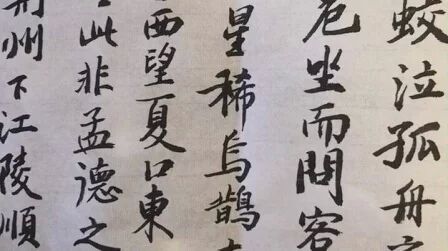 蛟泣孤舟
危坐而問客
星稀烏鵲
西望夏口東
此非孟德之
荊州下江陵順